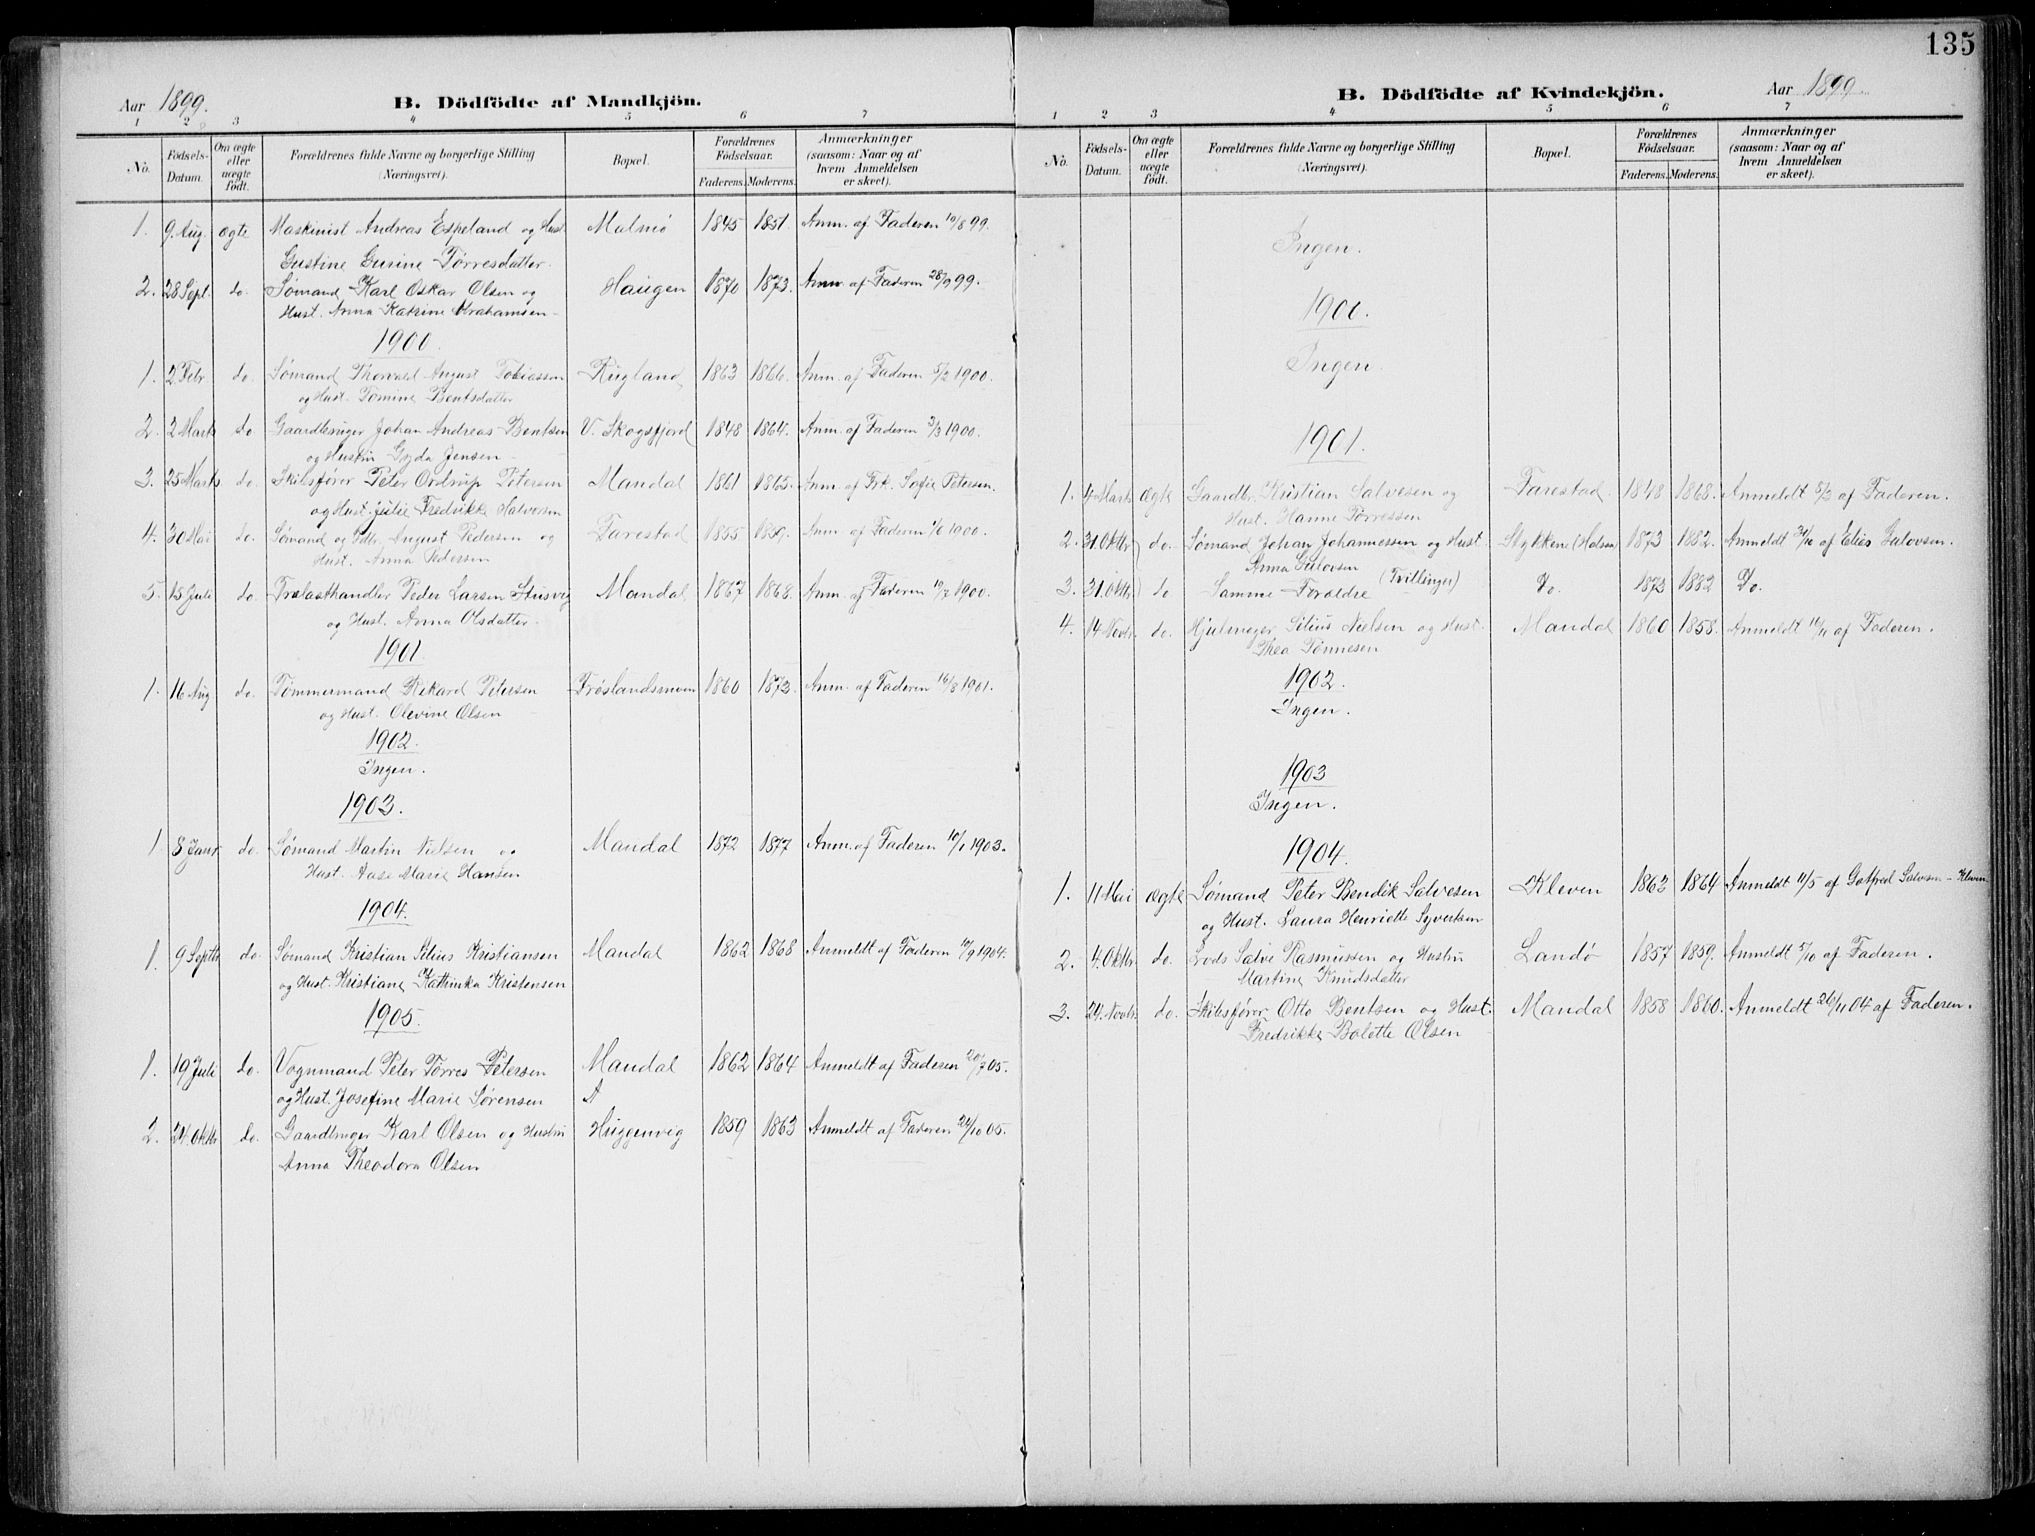 135
Aar 1899.
B. Dödfödte af Mandkjön.
1 2 3 4 5 6 7
No. Födsels-Datum. Om ægte eller uægte födt. Forældrenes fulde Navne og borgerlige Stilling (Næringsvei). Bopæl. Forældrenes Födselsaar. Faderens. Moderens. Anmærkninger (saasom: Naar og af hvem Anmeldelsen er skeet).
1. 9 Aug. ægte Maskinist Andreas Espeland og Hust. Malmø 1845 1851. Anm. af Faderen 10/8 99.
Gustine Gurine Tørresdatter.
2. 28 Sept. do. Sømand Karl Oskar Olsen og Haugen 1870 1873. Anm. af Faderen 28/9 99.
Hust. Anna Katrine Abrahamsen
1900.
1. 2 Febr do. Sømand Thorvald August Tobiassen Rugland 1863 1866. Anm. af Faderen 5/2 1900.
og Hust. Tomine Bentsdatter
2. 2 Marts do Gaardbruger Johan Andreas Bentsen V. Skogsfjord 1848 1864. Anm. af Faderen 3/3 1900.
og Hustru Gyda Jensen
3. 25 Marts do. Skibsfører Peter Ordrup Petersen Mandal 1861 1865. Anm. af Frk. Sofie Petersen.
og Hust. Julie Fredrikke Halvorsen
4. 30 Mai do. Sømand og Gdbr. August Pedersen og Farestad 1855 1859. Anm. af Faderen 1/6 1900.
Hust. Anna Pedersen
5. 15 Juli do. Trælasthandler Peder Larsen Stusvig Mandal 1867 1868. Anm. af Faderen 19/7 1900.
og Hust. Anna Olsdatter
1901.
1. 16 Aug do. Tømmermand Rikard Petersen Frøslandsmoen 1860 1873. Anm. af Faderen 16/8 1901.
og Hust. Olevine Olsen
1902.
Ingen.
1903.
1 8 Janr do. Sømand Martin Nielsen og Mandal 1872 1877 Anm. af Faderen 10/1 1903.
Hust. Aase Marie Hansen
1904.
1. 9 Septbr do. Sømand Kristian Silius Kristiansen Mandal 1862 1868 Anmeldt af Faderen 10/9 1904.
og Hust. Kristiane Kathinka Kristensen
1905.
1. 19 Juli do. Vognmand Peter Tørres Petersen Mandal 1862 1864 Anmeldt af Faderen 20/7 05.
og Hust. Josefine Marie Sørensen
2. 24. Oktbr do. Gaardbruger Karl Olsen og Hustru Huggenvig 1859 1863 Anmeldt af Faderen 24/10 05.
Anna Theodora Olsen
B. Dödfödte af Kvindekjön.
Aar 1899.
1 2 3 4 5 6 7
No. Födsels-Datum. Om ægte eller uægte födt. Forældrenes fulde Navne og borgerlige Stilling (Næringsvei). Bopæl. Forældrenes Födselsaar. Faderens. Moderens. Anmærkninger (saasom: Naar og af hvem Anmeldelsen er skeet).
Ingen.
1900.
Ingen.
1901.
1. 4 Marts ægte Gaardbr. Kristian Salvesen og Farestad. 1848 1868. Anmeldt 8/3 af Faderen.
Hust. Hanne Tørressen
2. 31. Oktbr do. Sømand Johan Johannessen og Hust. Stykkene (Halsen) 1873 1882. Anmeldt 31/10 af Elias Gulovsen.
Anna Gulovsen
3. 31. Oktbr do Samme Forældre (Tvillinger) Do. 1873 1882 Do.
4. 14 Novbr. do. Hjulmager Silius Nielsen og Hust. Mandal 1860 1858. Anmeldt 16/11 af Faderen.
Thea Tønnesen
1902.
Ingen.
1903
Ingen.
1904.
1. 11 Mai ægte Sømand Peter Bendik Salvesen Kleven 1863 1864 Anmeldt 11/5 af Gotfred Salvesen - Kleven
og Hust. Laura Henriette Syvertsen
2. 4. Oktbr. do. Lods Salve Rasmussen og Hustru Landø 1857 1859. Anmeldt 5/10 af Faderen.
Martine Knudsdatter
3. 24. Novbr. do. Skibsfører Otto Bentsen og Hust. Mandal 1858 1860. Anmeldt 26/11 04 af Faderen.
Fredrikke Bolette Olsen